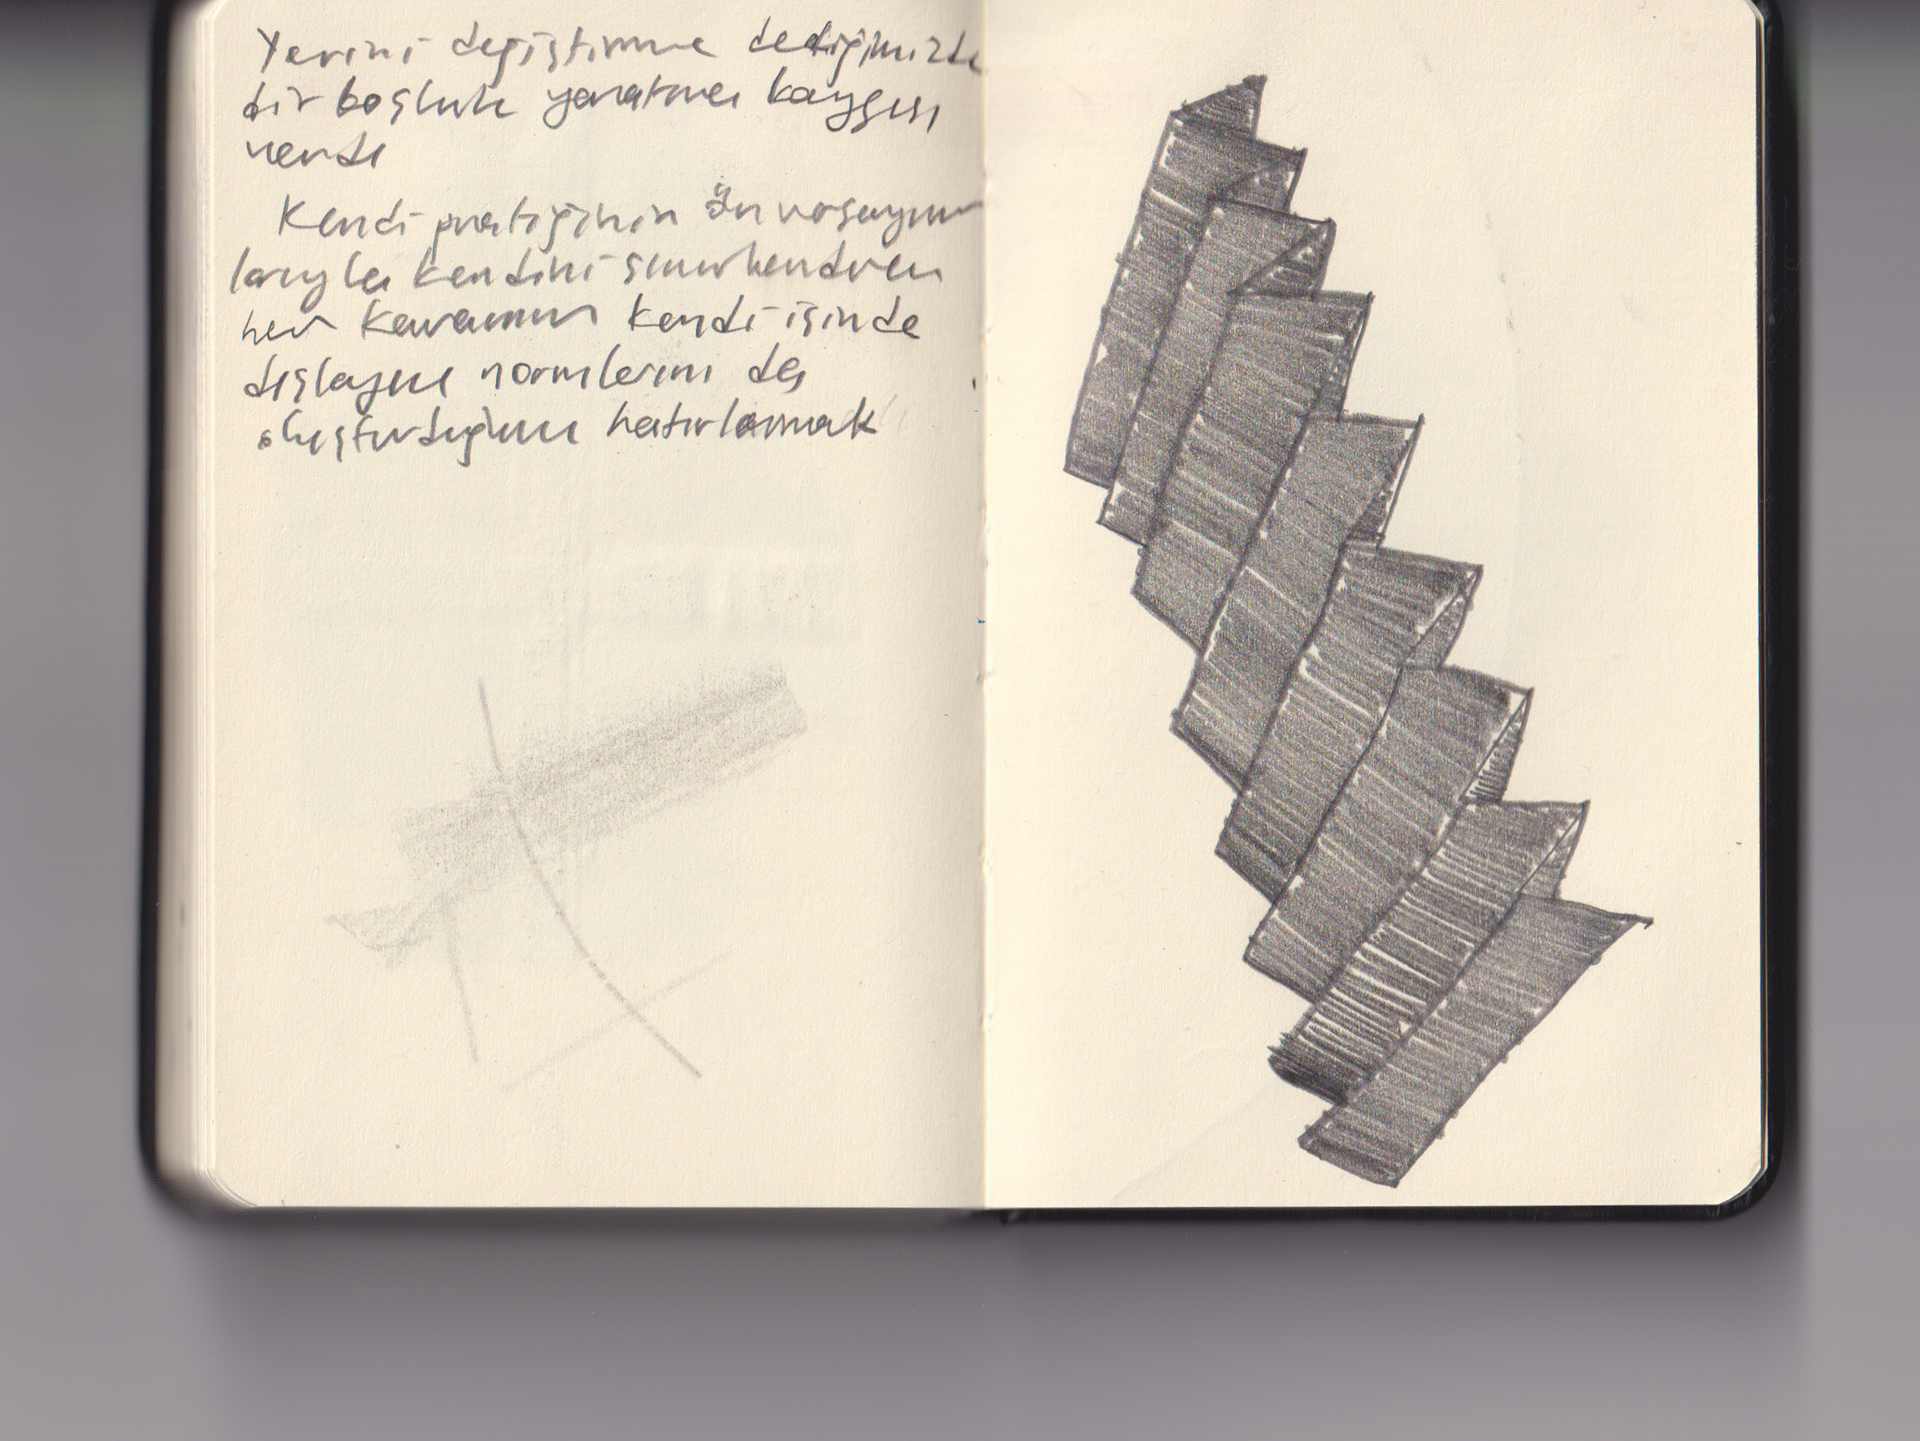 Yerini değiştirme dediğimizde
bir boşluk yaratma kaygısı
vardı
Kendi pratiğinin ön varsayım
larıyla kendini sınırlandıran
her kavramın kendi içinde
dışlayıcı normlarını da
oluşturduğunu hatırlamak